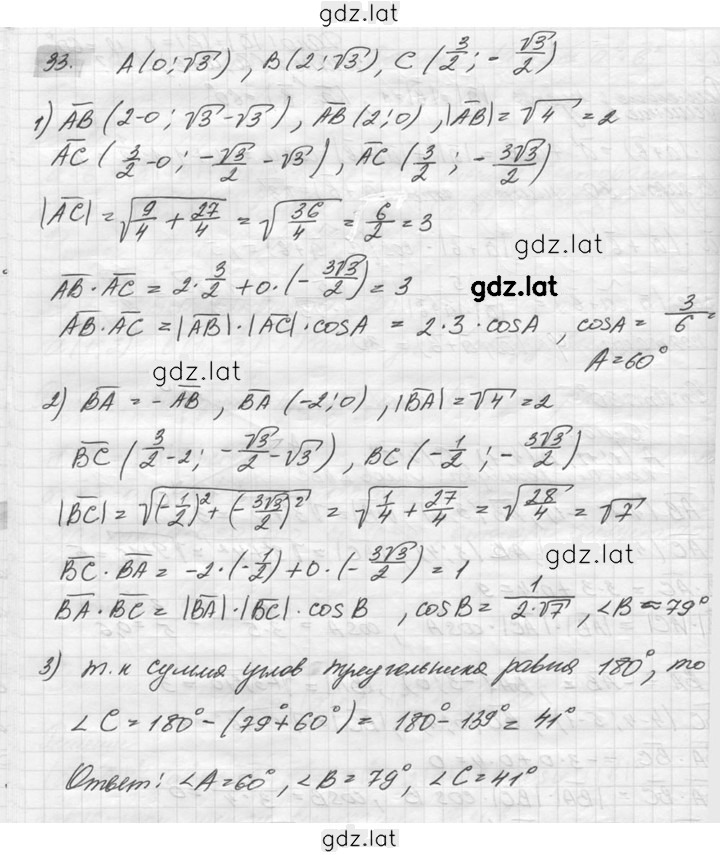 gdz.lat
93. A(0; √3), B(2; √3), C(3/2; -√3/2)
1) A̅B̅(2-0; √3-√3), A̅B̅(2; 0), |A̅B̅|=√4=2
A̅C̅(3/2-0; -√3/2-√3), A̅C̅(3/2; -3√3/2)
|A̅C̅|=√(9/4+27/4)=√(36/4)=6/2=3
gdz.lat
A̅B̅·A̅C̅=2·3/2+0·(-3√3/2)=3
gdz.lat
A̅B̅·A̅C̅=|A̅B̅|·|A̅C̅|·cosA=2·3·cosA, cosA=3/6=
A=60°
gdz.lat
2) B̅A̅=-A̅B̅, B̅A̅(-2; 0), |B̅A̅|=√4=2
B̅C̅(3/2-2; -√3/2-√3), BC(-1/2; -3√3/2)
|B̅C̅|=√((-1/2)²+(-3√3/2)²)=√(1/4+27/4)=√(28/4)=√7
gdz.lat
B̅C̅·B̅A̅=-2·(-1/2)+0·(-3√3/2)=1
B̅A̅·B̅C̅=|B̅A̅|·|B̅C̅|·cosB, cosB=1/(2·√7), ∠B≈79°
gdz.lat
3) т.к сумма углов треугольника равна 180°, то
∠C=180°-(79°+60°)=180°-139°=41°
Ответ: ∠A=60°, ∠B=79°, ∠C=41°
gdz.lat